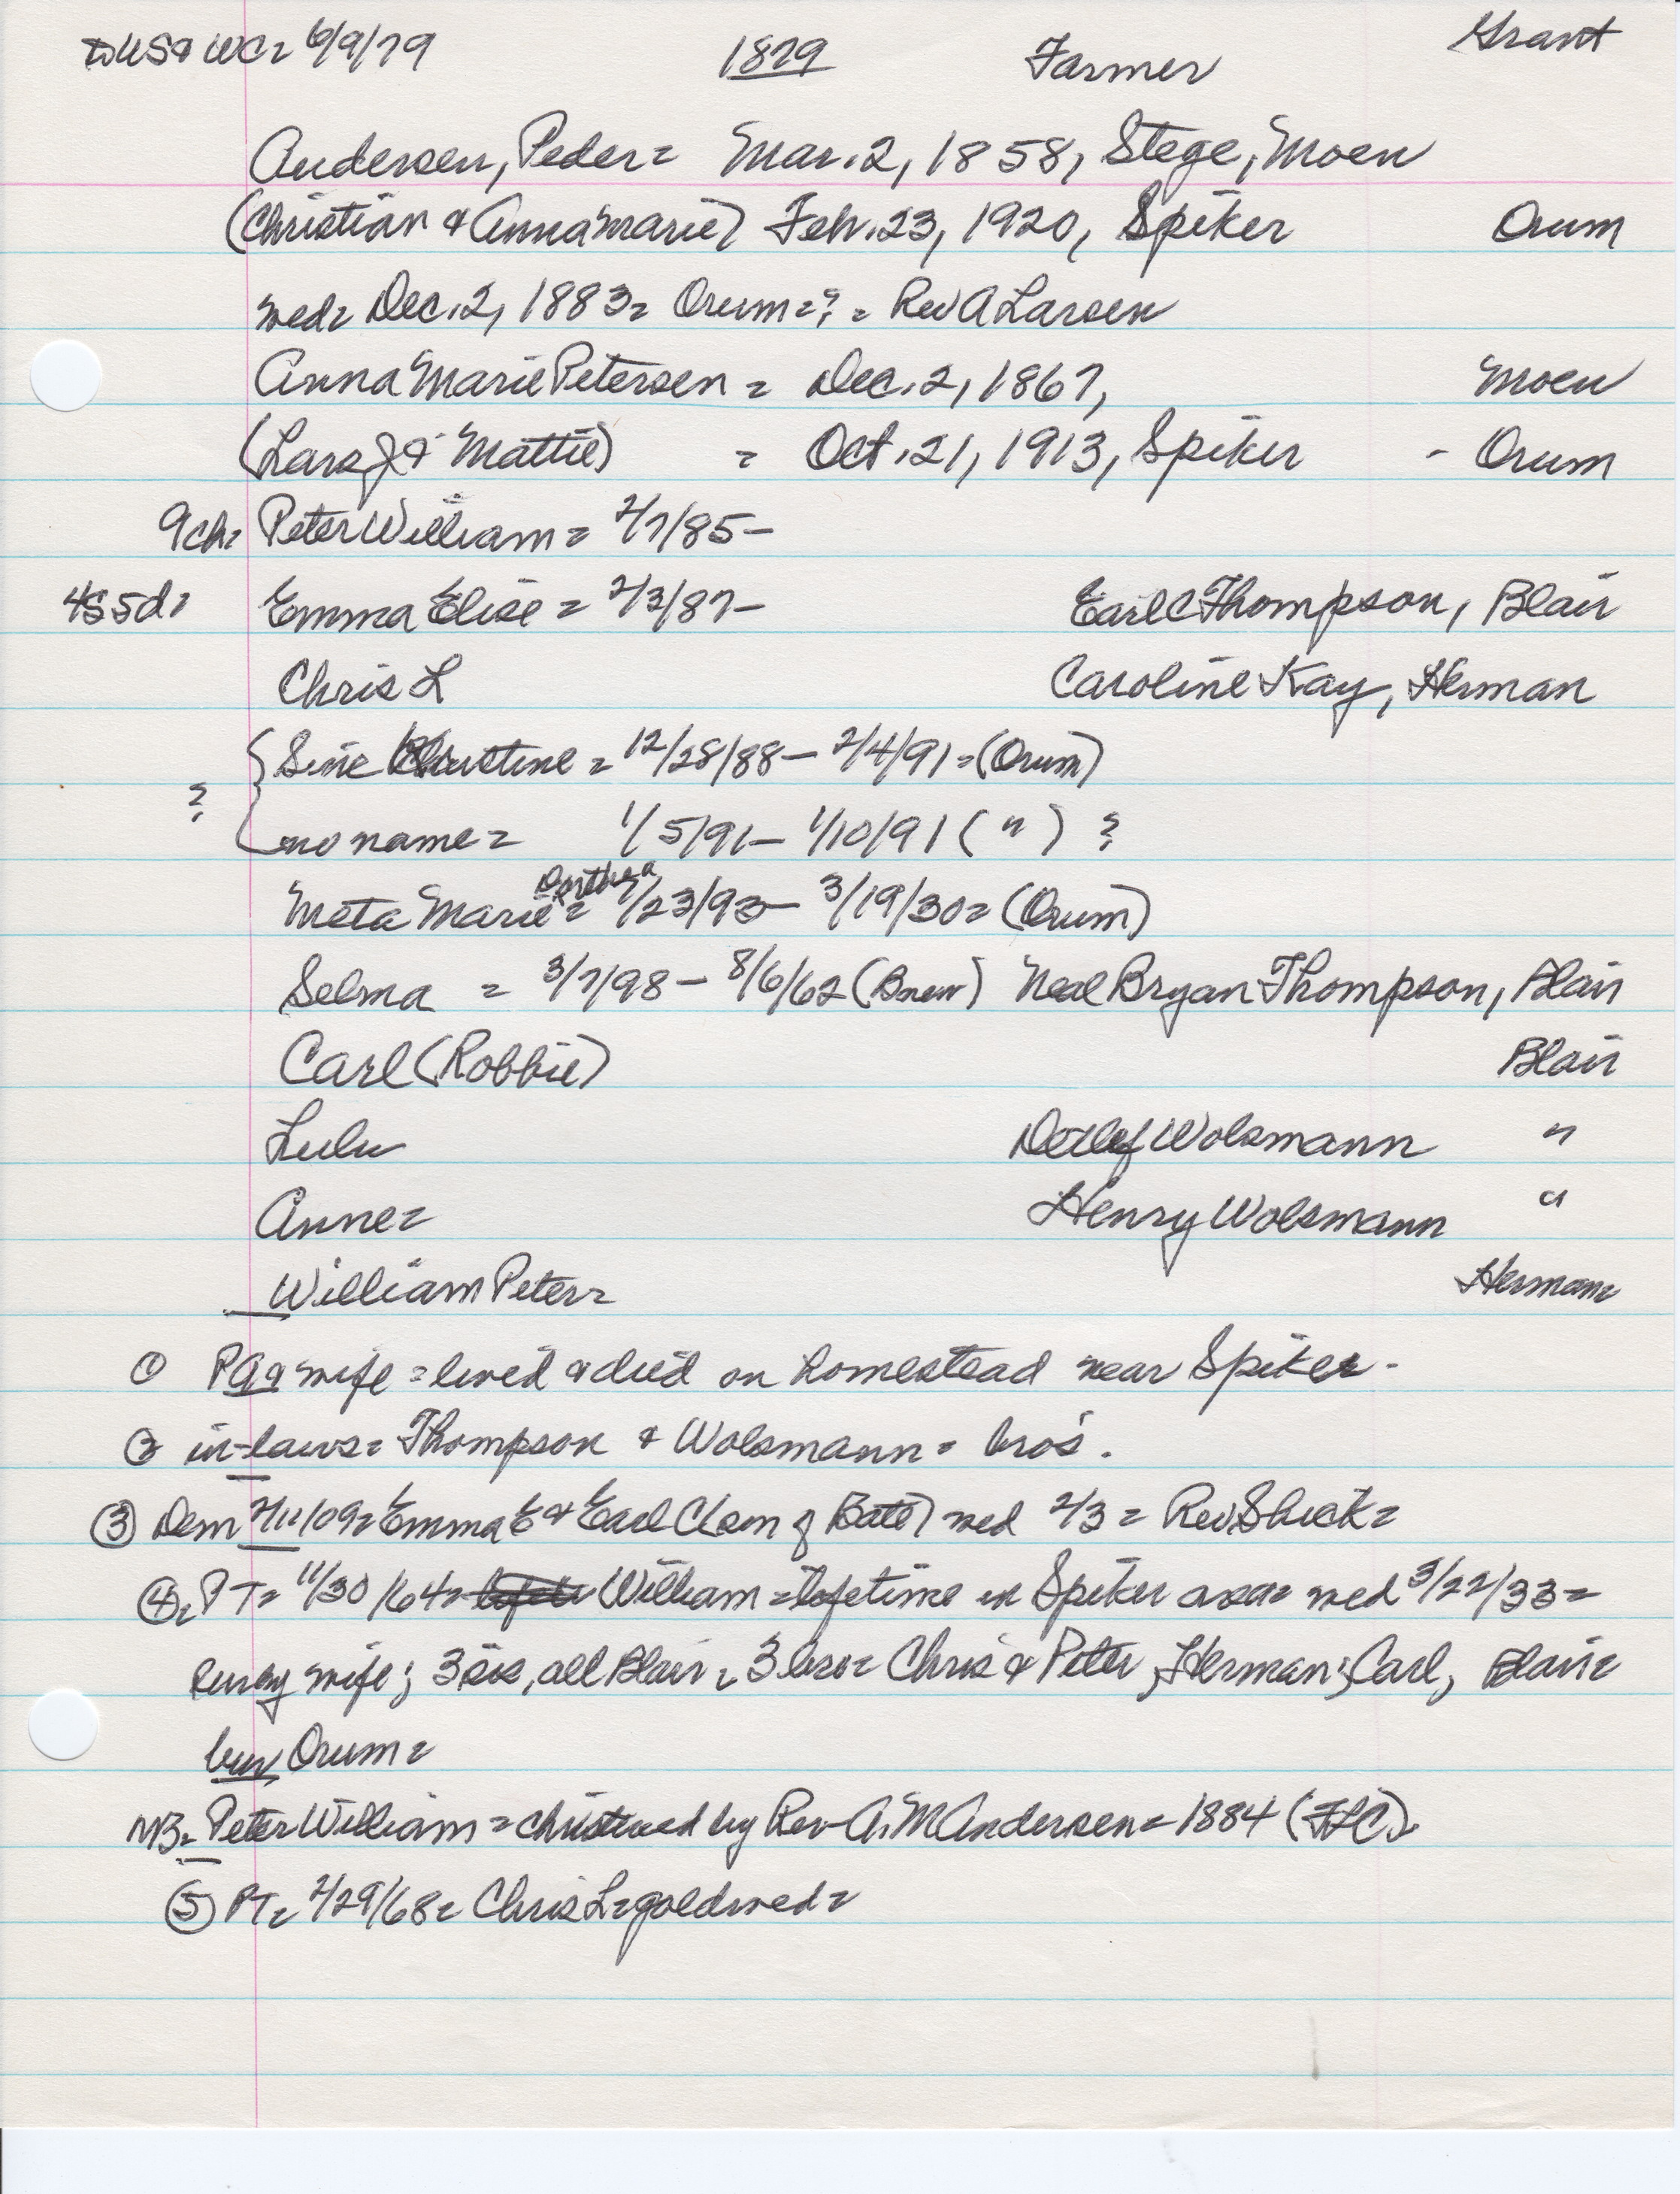 DUS & WC= 6/9/79 1879 Farmer Grant
Andersen, Peder= Mar.2, 1858, Stege, Moen
(Christian & Anna Marie) Feb.23, 1920, Spiker Orum
wed= Dec.2, 1883= Orum=?= Rev A Larsen
Anna Marie Petersen = Dec.2, 1867, Moen
(Lars J & Mattie) = Oct.21, 1913, Spiker - Orum
9ch= Peter William = 2/7/85-
4s5d= Emma Elise = 2/3/87- Earl C Thompson, Blair
Chris L Caroline Kay, Herman
{Sine Christine = 12/28/88- 2/4/91=(Orum)
? no name= 1/5/91- 1/10/91 ( " ) ?
Dorthea
Meta Marie= 1/23/93- 3/19/30= (Orum)
Selma = 3/7/98- 8/6/62 (Bnew) Neal Bryan Thompson, Blair
Carl (Robbie) Blair
Lulu Detlef Wolsmann "
Anne= Henry Wolsmann "
William Peter= Herman=
① PA & wife = lived & died on homestead near Spiker-
② in-laws= Thompson & Wolsmann= bros.
③ Dem 2/11/09= Emma E & Earl C (son of Bate) wed 2/3 = Rev Shick=
④= PT= 11/30/64= William = lifetime in Spiker area= wed 3/22/33=
surv by wife; 3 sis, all Blair = 3 bro= Chris & Peter, Herman; Carl, Blair=
bur Orum=
NB= Peter William = christened by Rev A.M Andersen= 1884 (FLC).
⑤ PT= 2/29/68= Chris L= gold wed=